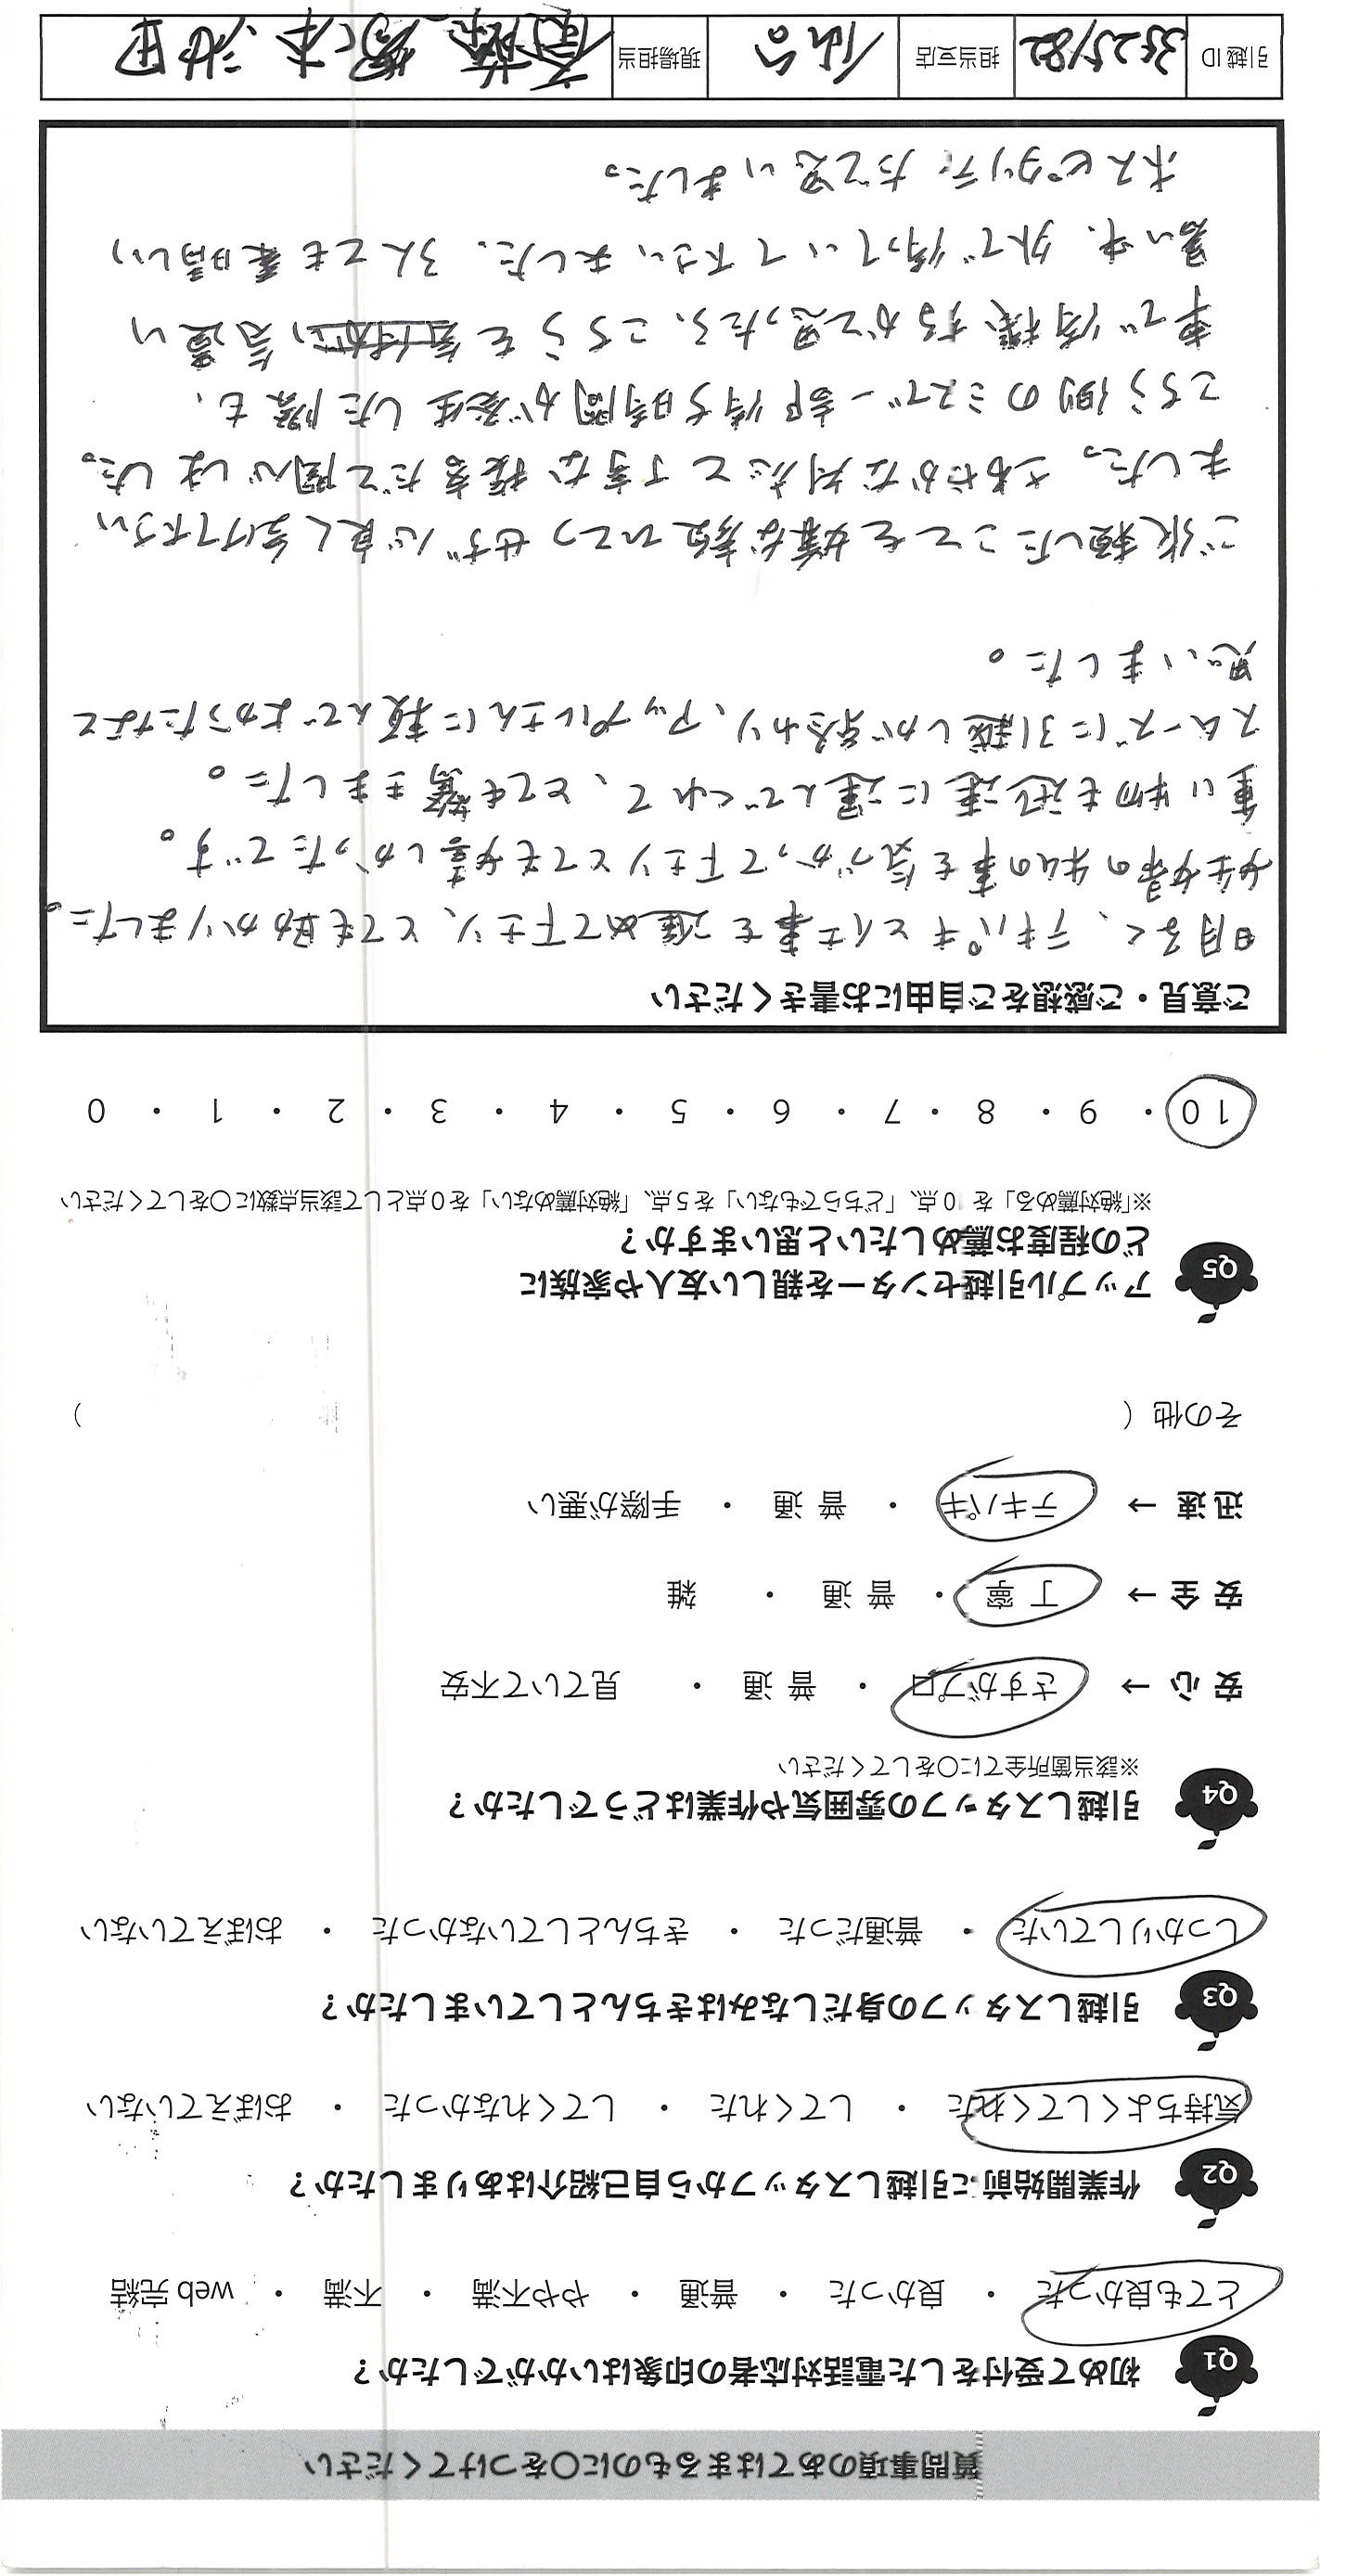 質問事項のあてはまるものに○をつけてください
Q1 初めて受付をした電話対応者の印象はいかがでしたか？
とても良かった ・ 良かった ・ 普通 ・ やや不満 ・ 不満 ・ web 完結
Q2 作業開始前に引越しスタッフから自己紹介はありましたか？
気持ちよくしてくれた ・ してくれた ・ してくれなかった ・ おぼえていない
Q3 引越しスタッフの身だしなみはきちんとしていましたか？
しっかりしていた ・ 普通だった ・ きちんとしていなかった ・ おぼえていない
Q4 引越しスタッフの雰囲気や作業はどうでしたか？
※該当箇所全てに○をしてください
安 心 → さすがプロ ・ 普 通 ・ 見ていて不安
安 全 → 丁 寧 ・ 普 通 ・ 雑
迅 速 → テキパキ ・ 普 通 ・ 手際が悪い
その他（ ）
Q5 アップル引越センターを親しい友人や家族に
どの程度お薦めしたいと思いますか？
※「絶対薦める」を 10点、「どちらでもない」を５点、「絶対薦めない」を０点として該当点数に○をしてください
10 ・ 9 ・ 8 ・ 7 ・ 6 ・ 5 ・ 4 ・ 3 ・ 2 ・ 1 ・ 0
ご意見・ご感想をご自由にお書きください
明るく、テキパキと仕事を進めて下さり、とても助かりました。
女の私の事も気づかって下さりとても嬉しかったです。
重い物も迅速に運んでくれて、とても驚きました。
スムーズに引越しが終わり、アップルさんに頼んでよかったなと
思いました。
ご依頼したことを嫌な顔ひとつせず心良く受けて下さい
ました。さわやかな対応と丁寧な接客だと関心しました。
こちら側のミスで一部待ち時間が発生した際も、
車で待機するかと思ったら、こちらを気遣い
暑い中、外で待っていて下さいました。3人とも素晴しい
ホスピタリティだと思いました。
引越 ID 3525182 担当支店 仙台 現場担当 斎藤、塚本、池田